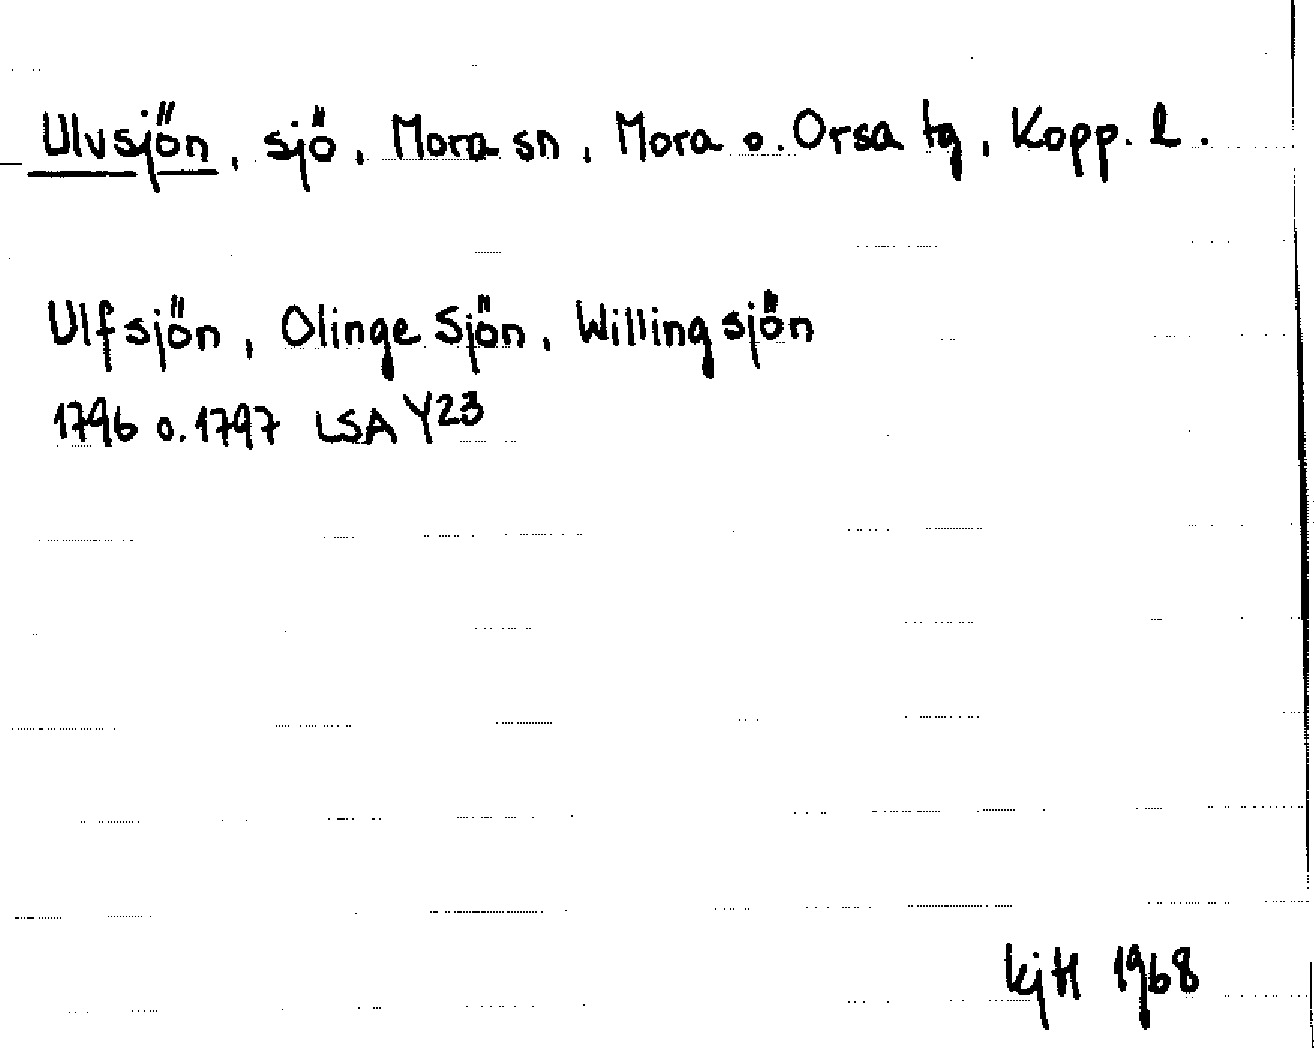 Ulvsjön, sjö, Mora sn, Mora o. Orsa tg, Kopp. l.
Ulfsjön, Olinge Sjön, Willingsjön
1796 o. 1797 LSA Y23
kjH 1968